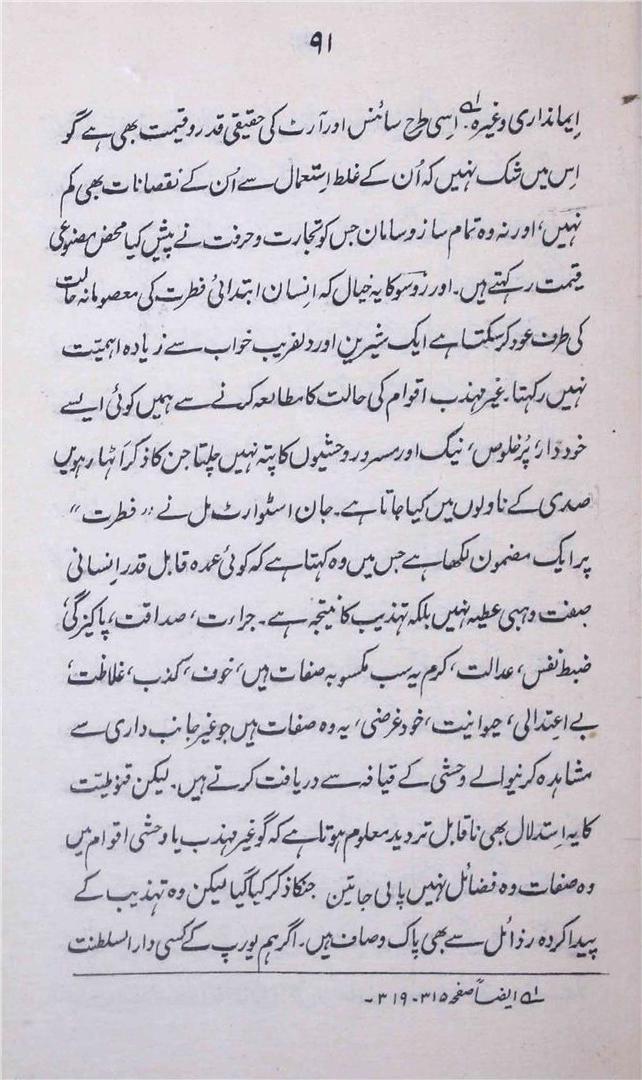 ۹۱
ایمانداری وغیرہ۔ لہ اِسی طرح سائنس اور آرٹ کی حقیقی قدر و قیمت بھی ہے گو
اِس میں شک نہیں کہ اُن کے غلط اِستعمال سے اُن کے نقصانات بھی کم
نہیں، اور نہ وہ تمام ساز و سامان جس کو تجارت و حرفت نے پیش کیا محض مصنوعی
قیمت رکہتے ہیں۔ اور رُوسو کا یہ خیال کہ اِنسان ابتدائی فطرت کی معصومانہ حالت
کی طرف عود کر سکتا ہے ایک شیرین اور دلفریب خواب سے زیادہ اہمیّت
نہیں رکہتا۔ غیر مہذب اقوام کی حالت کا مطالعہ کرنے سے ہمیں کوئی ایسے
خود دار، پُرخلوص، نیک اور مسرور وحشیوں کا پتہ نہیں چلتا جن کا ذکر اٹہارہویں
صدی کے ناولوں میں کیا جاتا ہے۔ جان اسٹوارٹ مل نے ”فطرت“
پر ایک مضمون لکھا ہے جس میں وہ کہتا ہے کہ کوئی عمدہ قابل قدر اِنسانی
صفت وہبی عطیہ نہیں بلکہ تہذیب کا نتیجہ ہے۔ جراءت، صداقت، پاکیزگی،
ضبط نفس، عدالت، کرم یہ سب مکسوبہ صفات ہیں، خوف، کذب، غلاظت،
بے اعتدالی، حیوانیت، خود غرضی، یہ وہ صفات ہیں جو غیر جانب داری سے
مشاہدہ کرنیوالے وحشی کے قیافہ سے دریافت کرتے ہیں۔ لیکن قنوطیّت
کا یہ اِستدلال بھی ناقابل تردید معلوم ہوتا ہے کہ گو غیر مہذب یا وحشی اقوام میں
وہ صفات وہ فضائل نہیں پائی جاتین جنکا ذکر کیا گیا لیکن وہ تہذیب کے
پیدا کردہ رذائل سے بھی پاک و صاف ہیں۔ اگر ہم یورپ کے کسی دار السلطنت
لہ ایضاً صفحہ ۳۱۵-۳۱۹-